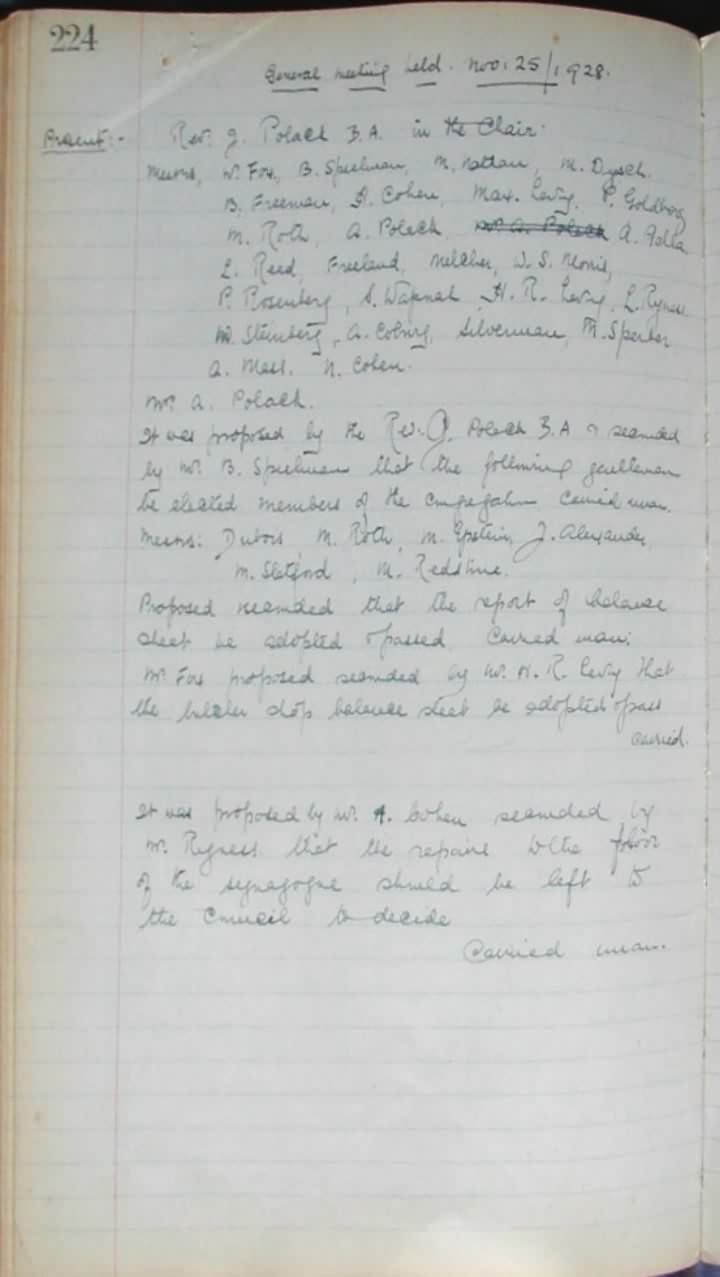 224
General meeting held. Nov: 25/1928.
Present:- Rev. J. Polack B.A. in the Chair.
Messrs, W. Fox, B. Spielman, M. Nathan, M. Dysch.
B. Freeman, A. Cohen, Max. Levy. P. Goldberg
M. Roth, A. Polack, Mr A. Polack A.
L. Reed, Freeland, Melcher, W. S. Morris,
P. Rosenberg, S. Wapnah, H. R. Levy, L. Ryness.
M. Steinberg, A. Coburg, Silverman, M. Sperber
A. Mass. N. Cohen.
Mr. A. Polack.
It was proposed by the Rev. J. Polack B.A & seconded
by Mr. B. Spielman that the following gentlemen
be elected members of the congregation Carried unan.
Messrs: Dubois M. Roth, M. Epstein, J. Alexander,
M. Sletford, M. Redstone.
Proposed seconded that the report of balance
sheet be adopted & passed. Carried unan:
Mr Fox proposed seconded by Mr. H. R. Levy that
the butcher shop balance sheet be adopted & pass
carried.
It was proposed by Mr. A. Cohen seconded by
Mr. Ryness. that the repairs to the floor
of the synagogue should be left to
the Council to decide
Carried unan.